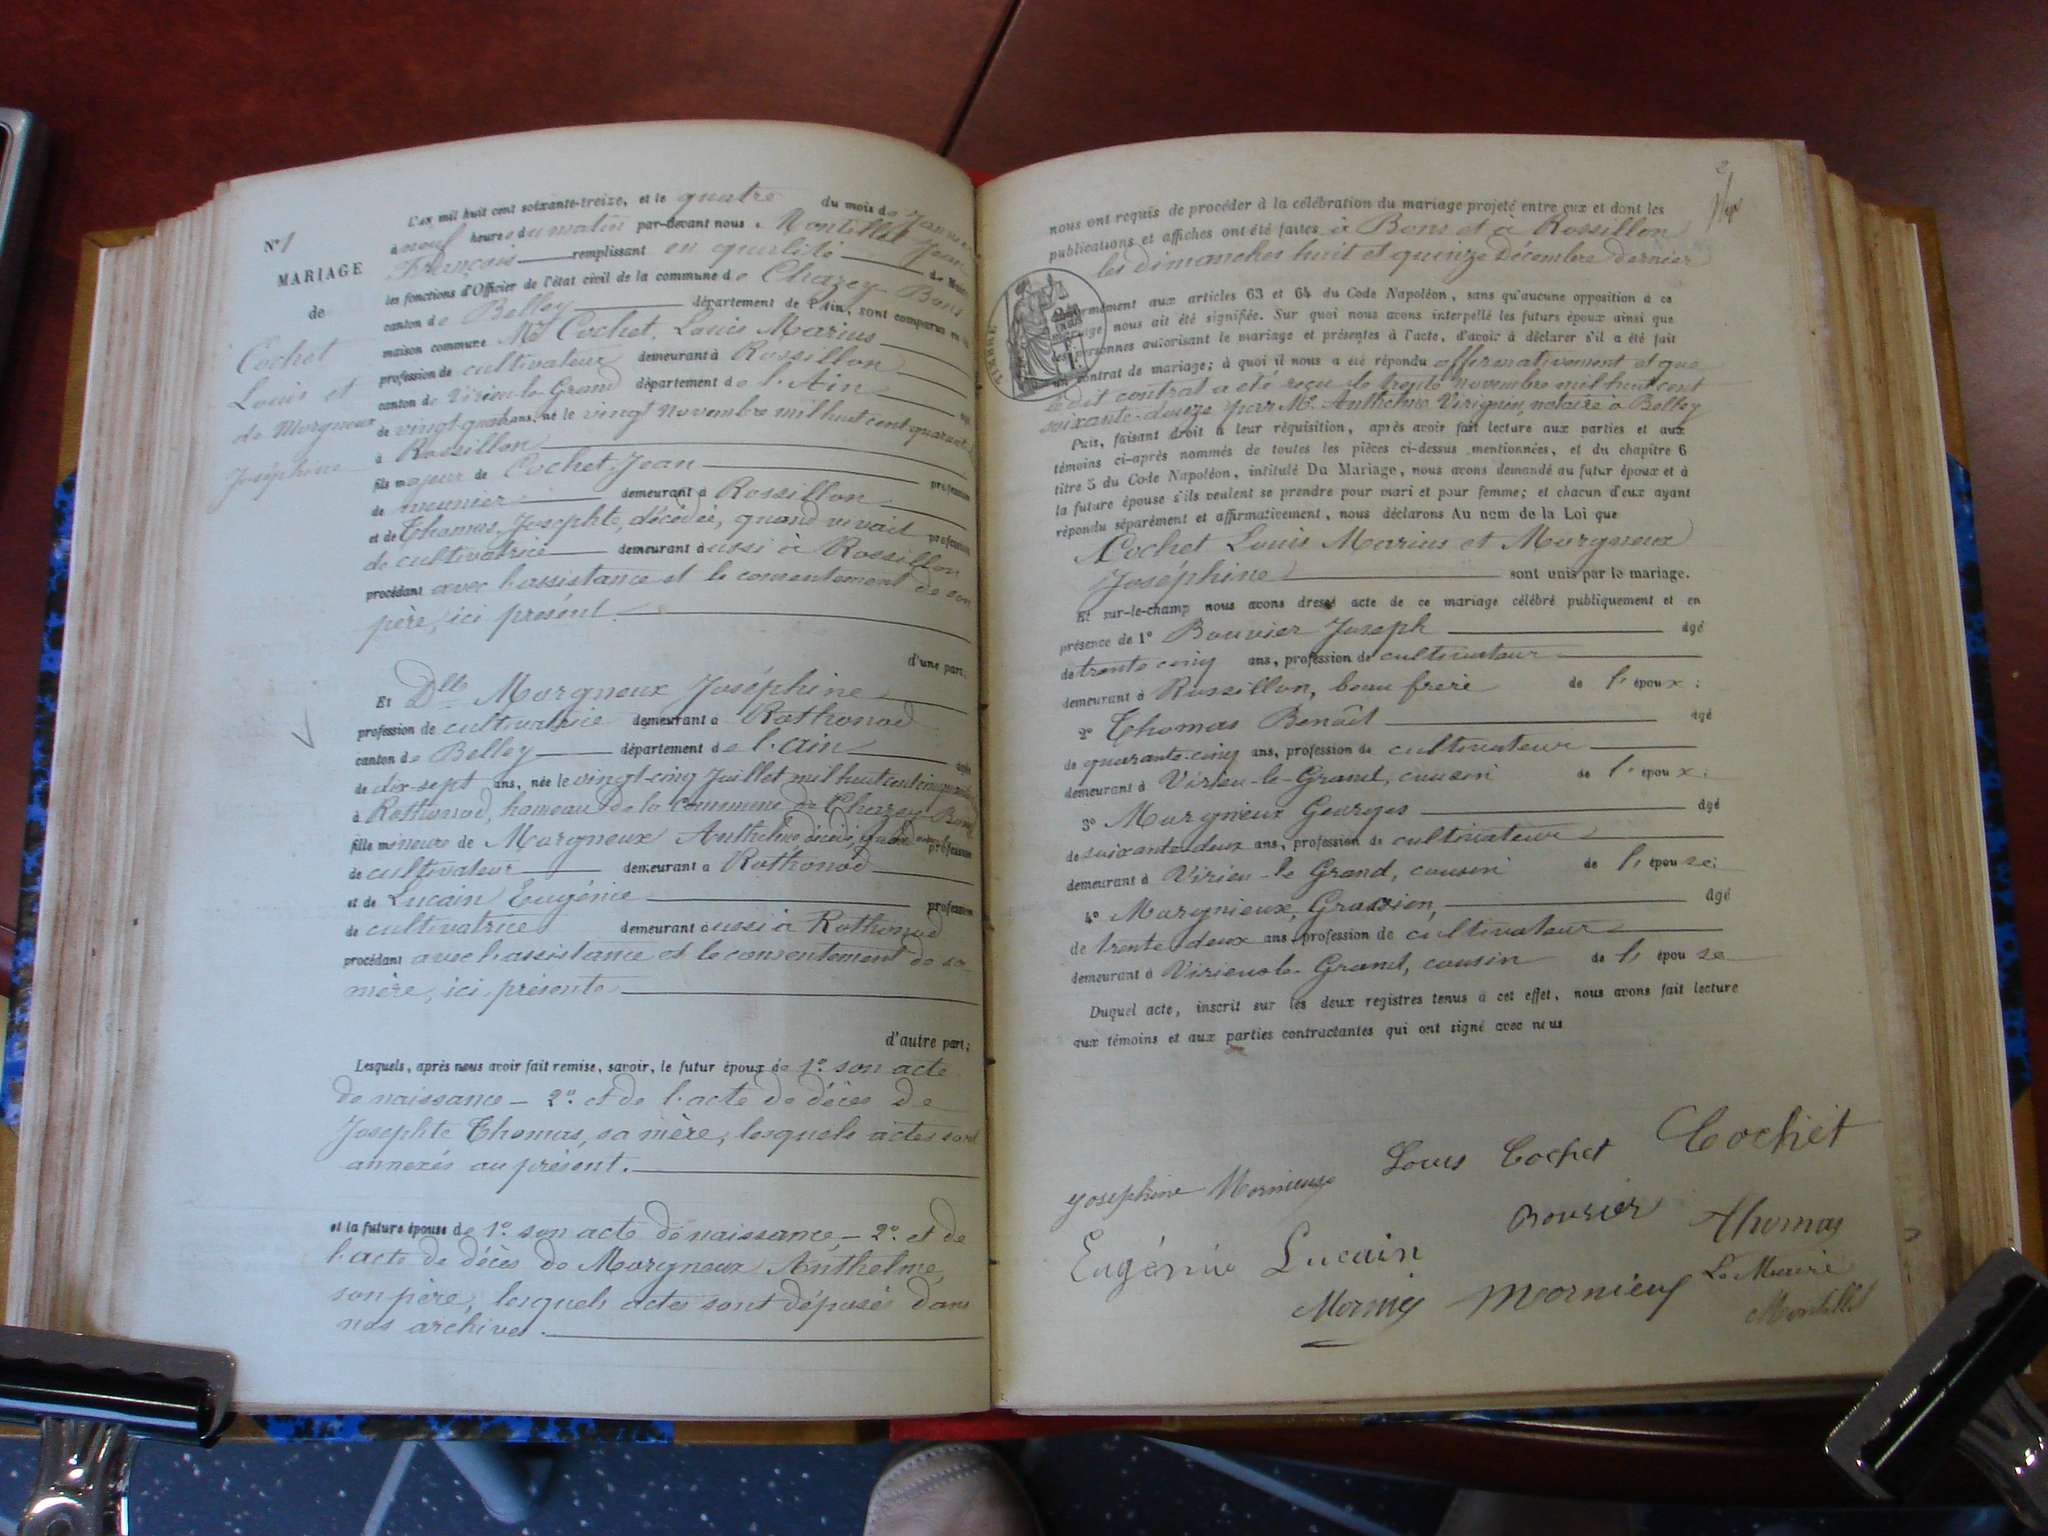 N° 1
MARIAGE
de
Cochet
Louis et
de Morgneux
Joséphine
L'an mil huit cent soixante-treize, et le quatre du mois de Janvier
à neuf heures du matin par-devant nous Montillet Jean
François remplissant en qualité de Maire
les fonctions d'Officier de l'état civil de la commune de Chazey Bons
canton de Belley département de l'Ain, sont comparus en la
maison commune Mr Cochet, Louis Marius
profession de cultivateur demeurant à Rossillon
canton de Virieu-le-Grand département de l'Ain âgé
de vingt-quatre ans, né le vingt novembre mil huit cent quarante
à Rossillon
fils majeur de Cochet, Jean profession
de meunier demeurant à Rossillon
et de Thomas, Josephte, décédée, quand vivait profession
de cultivatrice demeurant aussi à Rossillon
procédant avec l'assistance et le consentement de son
père, ici présent
d'une part;
Et Dlle Morgneux Joséphine
profession de cultivatrice demeurant à Rothonod
canton de Belley département de l'ain âgée
de dix-sept ans, née le vingt-cinq Juillet mil huit cent cinquante
à Rothonod, hameau de la commune de Chazey Bons
fille mineure de Morgneux Anthelme, décédé, quand vivait profession
de cultivateur demeurant à Rothonod
et de Lucain Eugénie profession
de cultivatrice demeurant aussi à Rothonod
procédant avec l'assistance et le consentement de sa
mère, ici présente
d'autre part;
Lesquels, après nous avoir fait remise, savoir, le futur époux de 1° son acte
de naissance – 2° et de l'acte de décès de
Josephte Thomas, sa mère, lesquels actes sont
annexés au présent.
et la future épouse de 1° son acte de naissance, – 2° et de
l'acte de décès de Morgneux Anthelme,
son père, lesquels actes sont déposés dans
nos archives
2
nous ont requis de procéder à la célébration du mariage projeté entre eux et dont les
publications et affiches ont été faites à Bons et à Rossillon
les dimanches huit et quinze décembre dernier
TIMBRE
conformément aux articles 63 et 64 du Code Napoléon, sans qu'aucune opposition à ce
mariage nous ait été signifiée. Sur quoi nous avons interpellé les futurs époux ainsi que
les personnes autorisant le mariage et présentes à l'acte, d'avoir à déclarer s'il a été fait
un contrat de mariage; à quoi il nous a été répondu affirmativement et que
le dit contrat a été reçu le trente novembre mil huit cent
soixante-douze par Me Anthelme Virignin, notaire à Belley
Puis, faisant droit à leur réquisition, après avoir fait lecture aux parties et aux
témoins ci-après nommés de toutes les pièces ci-dessus mentionnées, et du chapitre 6
titre 5 du Code Napoléon, intitulé Du Mariage, nous avons demandé au futur époux et à
la future épouse s'ils veulent se prendre pour mari et pour femme; et chacun d'eux ayant
répondu séparément et affirmativement, nous déclarons Au nom de la Loi que
Cochet Louis Marius et Morgneux
Joséphine sont unis par le mariage.
Et sur-le-champ nous avons dressé acte de ce mariage célébré publiquement et en
présence de 1° Bouvier Joseph âgé
de trente cinq ans, profession de cultivateur
demeurant à Rossillon, beau frère de l'époux;
2° Thomas Benoît âgé
de quarante-cinq ans, profession de cultivateur
demeurant à Virieu-le-Grand, cousin de l'époux;
3° Morgnieux Georges âgé
de soixante deux ans, profession de cultivateur
demeurant à Virieu-le Grand, cousin de l'épouse;
4° Morgnieux, Gration, âgé
de trente deux ans, profession de cultivateur
demeurant à Virieu-le-Grand, cousin de l'épouse
Duquel acte, inscrit sur les deux registres tenus à cet effet, nous avons fait lecture
aux témoins et aux parties contractantes qui ont signé avec nous
Josephine Mornieux Louis Cochet Cochet
Eugénie Lucain Bouvier Thomas
Mornieux Le Maire
Montillet